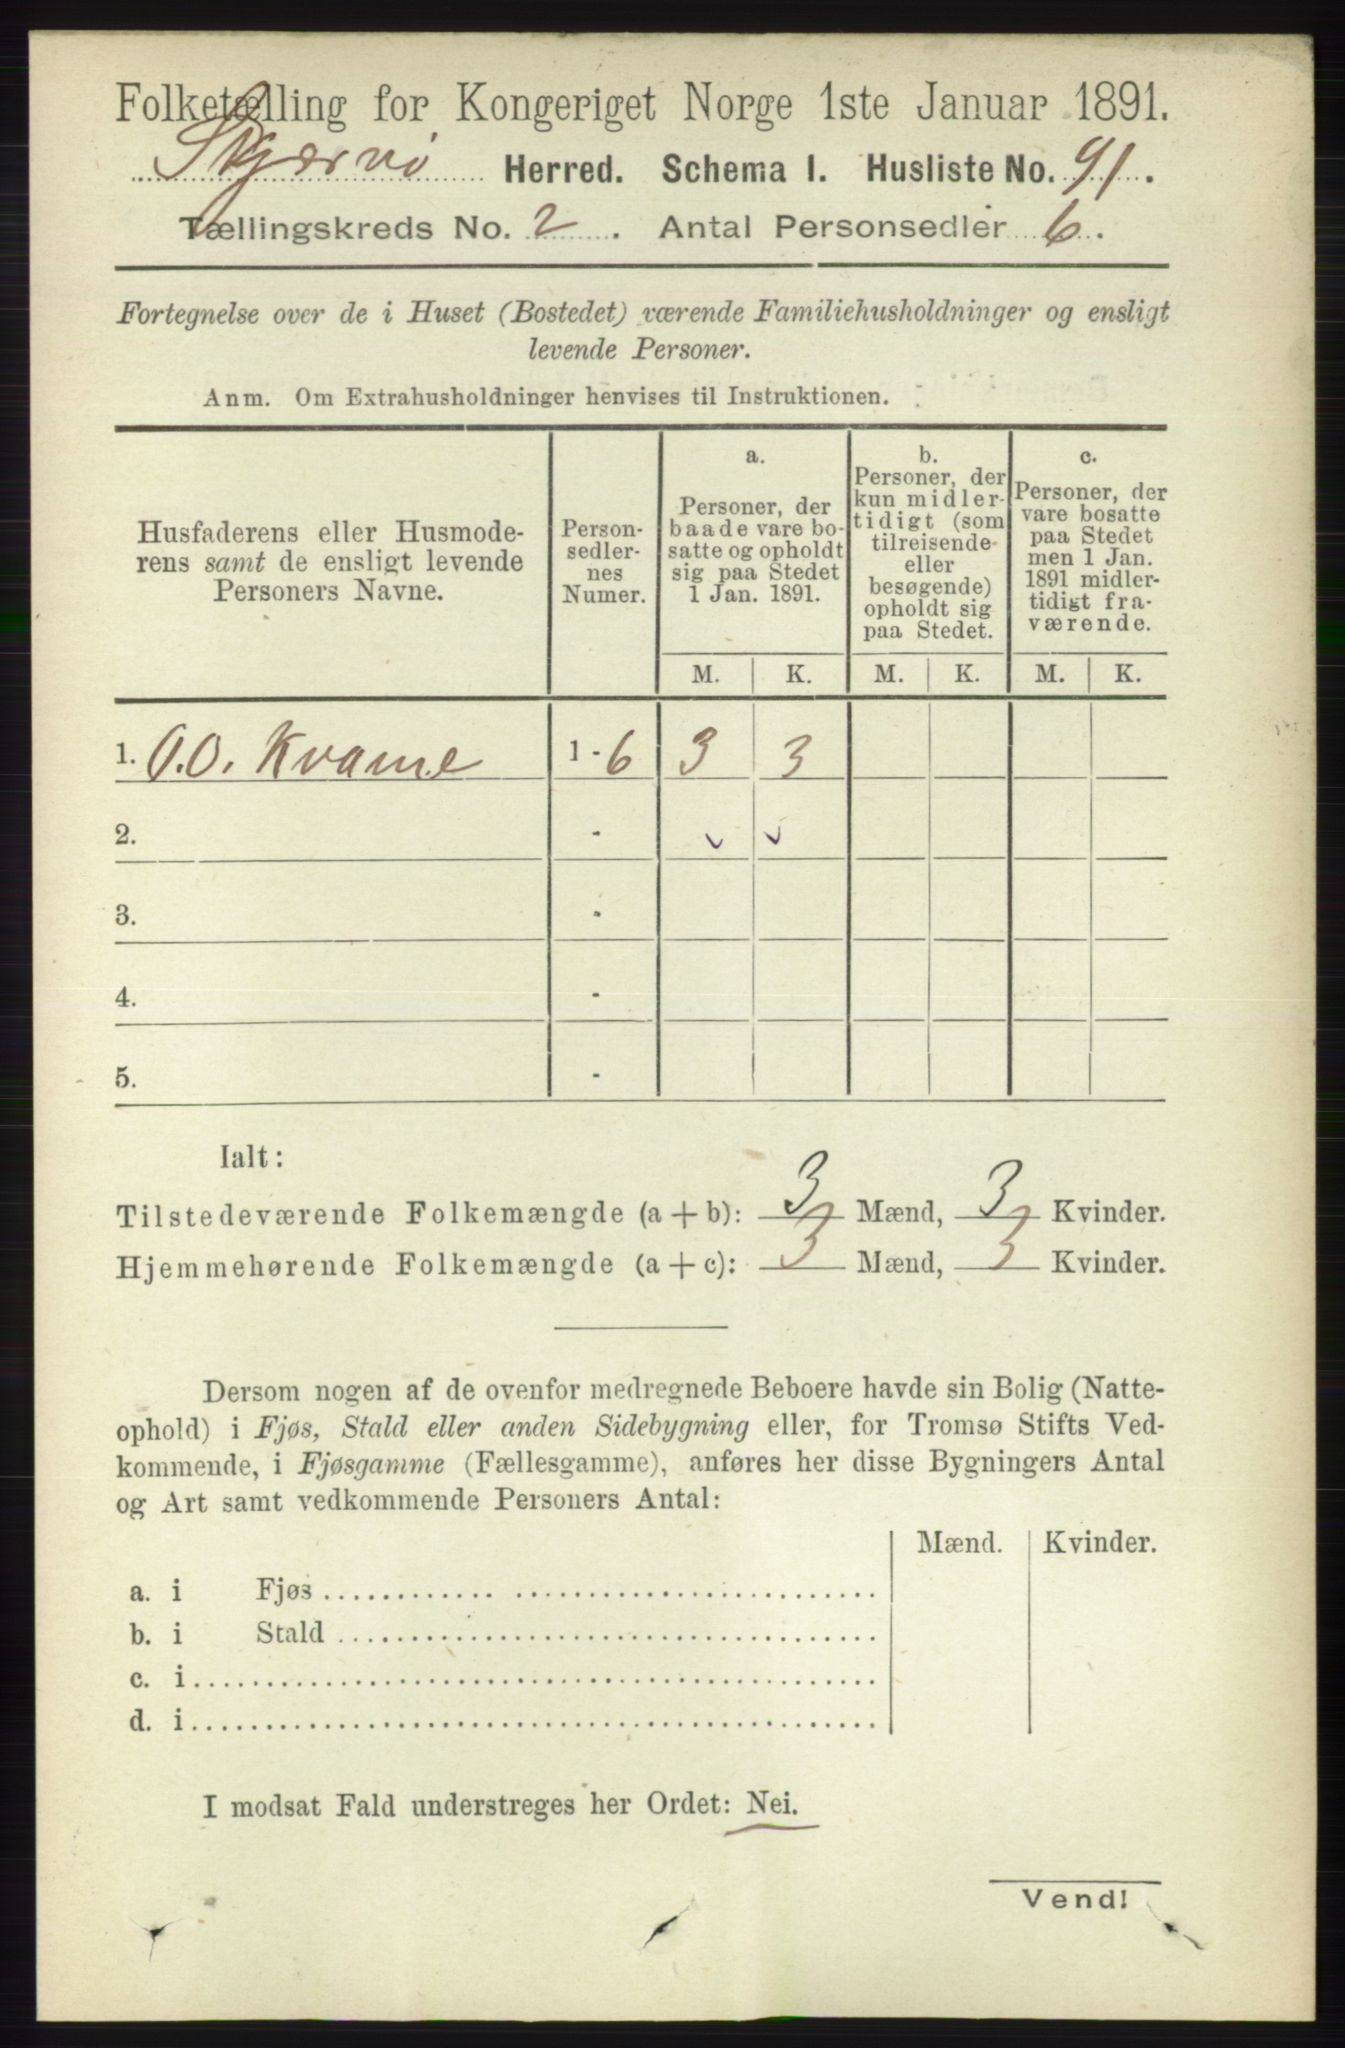 Folketælling for Kongeriget Norge 1ste Januar 1891.
Skjervø Herred. Schema I. Husliste No. 91.
Tællingskreds No. 2. Antal Personsedler 6.
Fortegnelse over de i Huset (Bostedet) værende Familiehusholdninger og ensligt
levende Personer.
Anm. Om Extrahusholdninger henvises til Instruktionen.
Husfaderens eller Husmode-
rens samt de ensligt levende
Personers Navne.
Person-
sedler-
nes
Numer.
a.
Personer, der
baade vare bo-
satte og opholdt
sig paa Stedet
1 Jan. 1891.
b.
Personer, der
kun midler-
tidigt (som
tilreisende
eller
besøgende)
opholdt sig
paa Stedet.
c.
Personer, der
vare bosatte
paa Stedet
men 1 Jan.
1891 midler-
tidigt fra-
værende.
M. K. M. K. M. K.
1. O.O. Kvame 1-6 3 3
2. -
3. -
4. -
5. -
Ialt:
Tilstedeværende Folkemængde (a + b): 3 Mænd, 3 Kvinder.
Hjemmehørende Folkemængde (a + c): 3 Mænd, 3 Kvinder.
Dersom nogen af de ovenfor medregnede Beboere havde sin Bolig (Natte-
ophold) i Fjøs, Stald eller anden Sidebygning eller, for Tromsø Stifts Ved-
kommende, i Fjøsgamme (Fællesgamme), anføres her disse Bygningers Antal
og Art samt vedkommende Personers Antal:
Mænd. Kvinder.
a. i Fjøs
b. i Stald
c. i
d. i
I modsat Fald understreges her Ordet: Nei.
Vend!